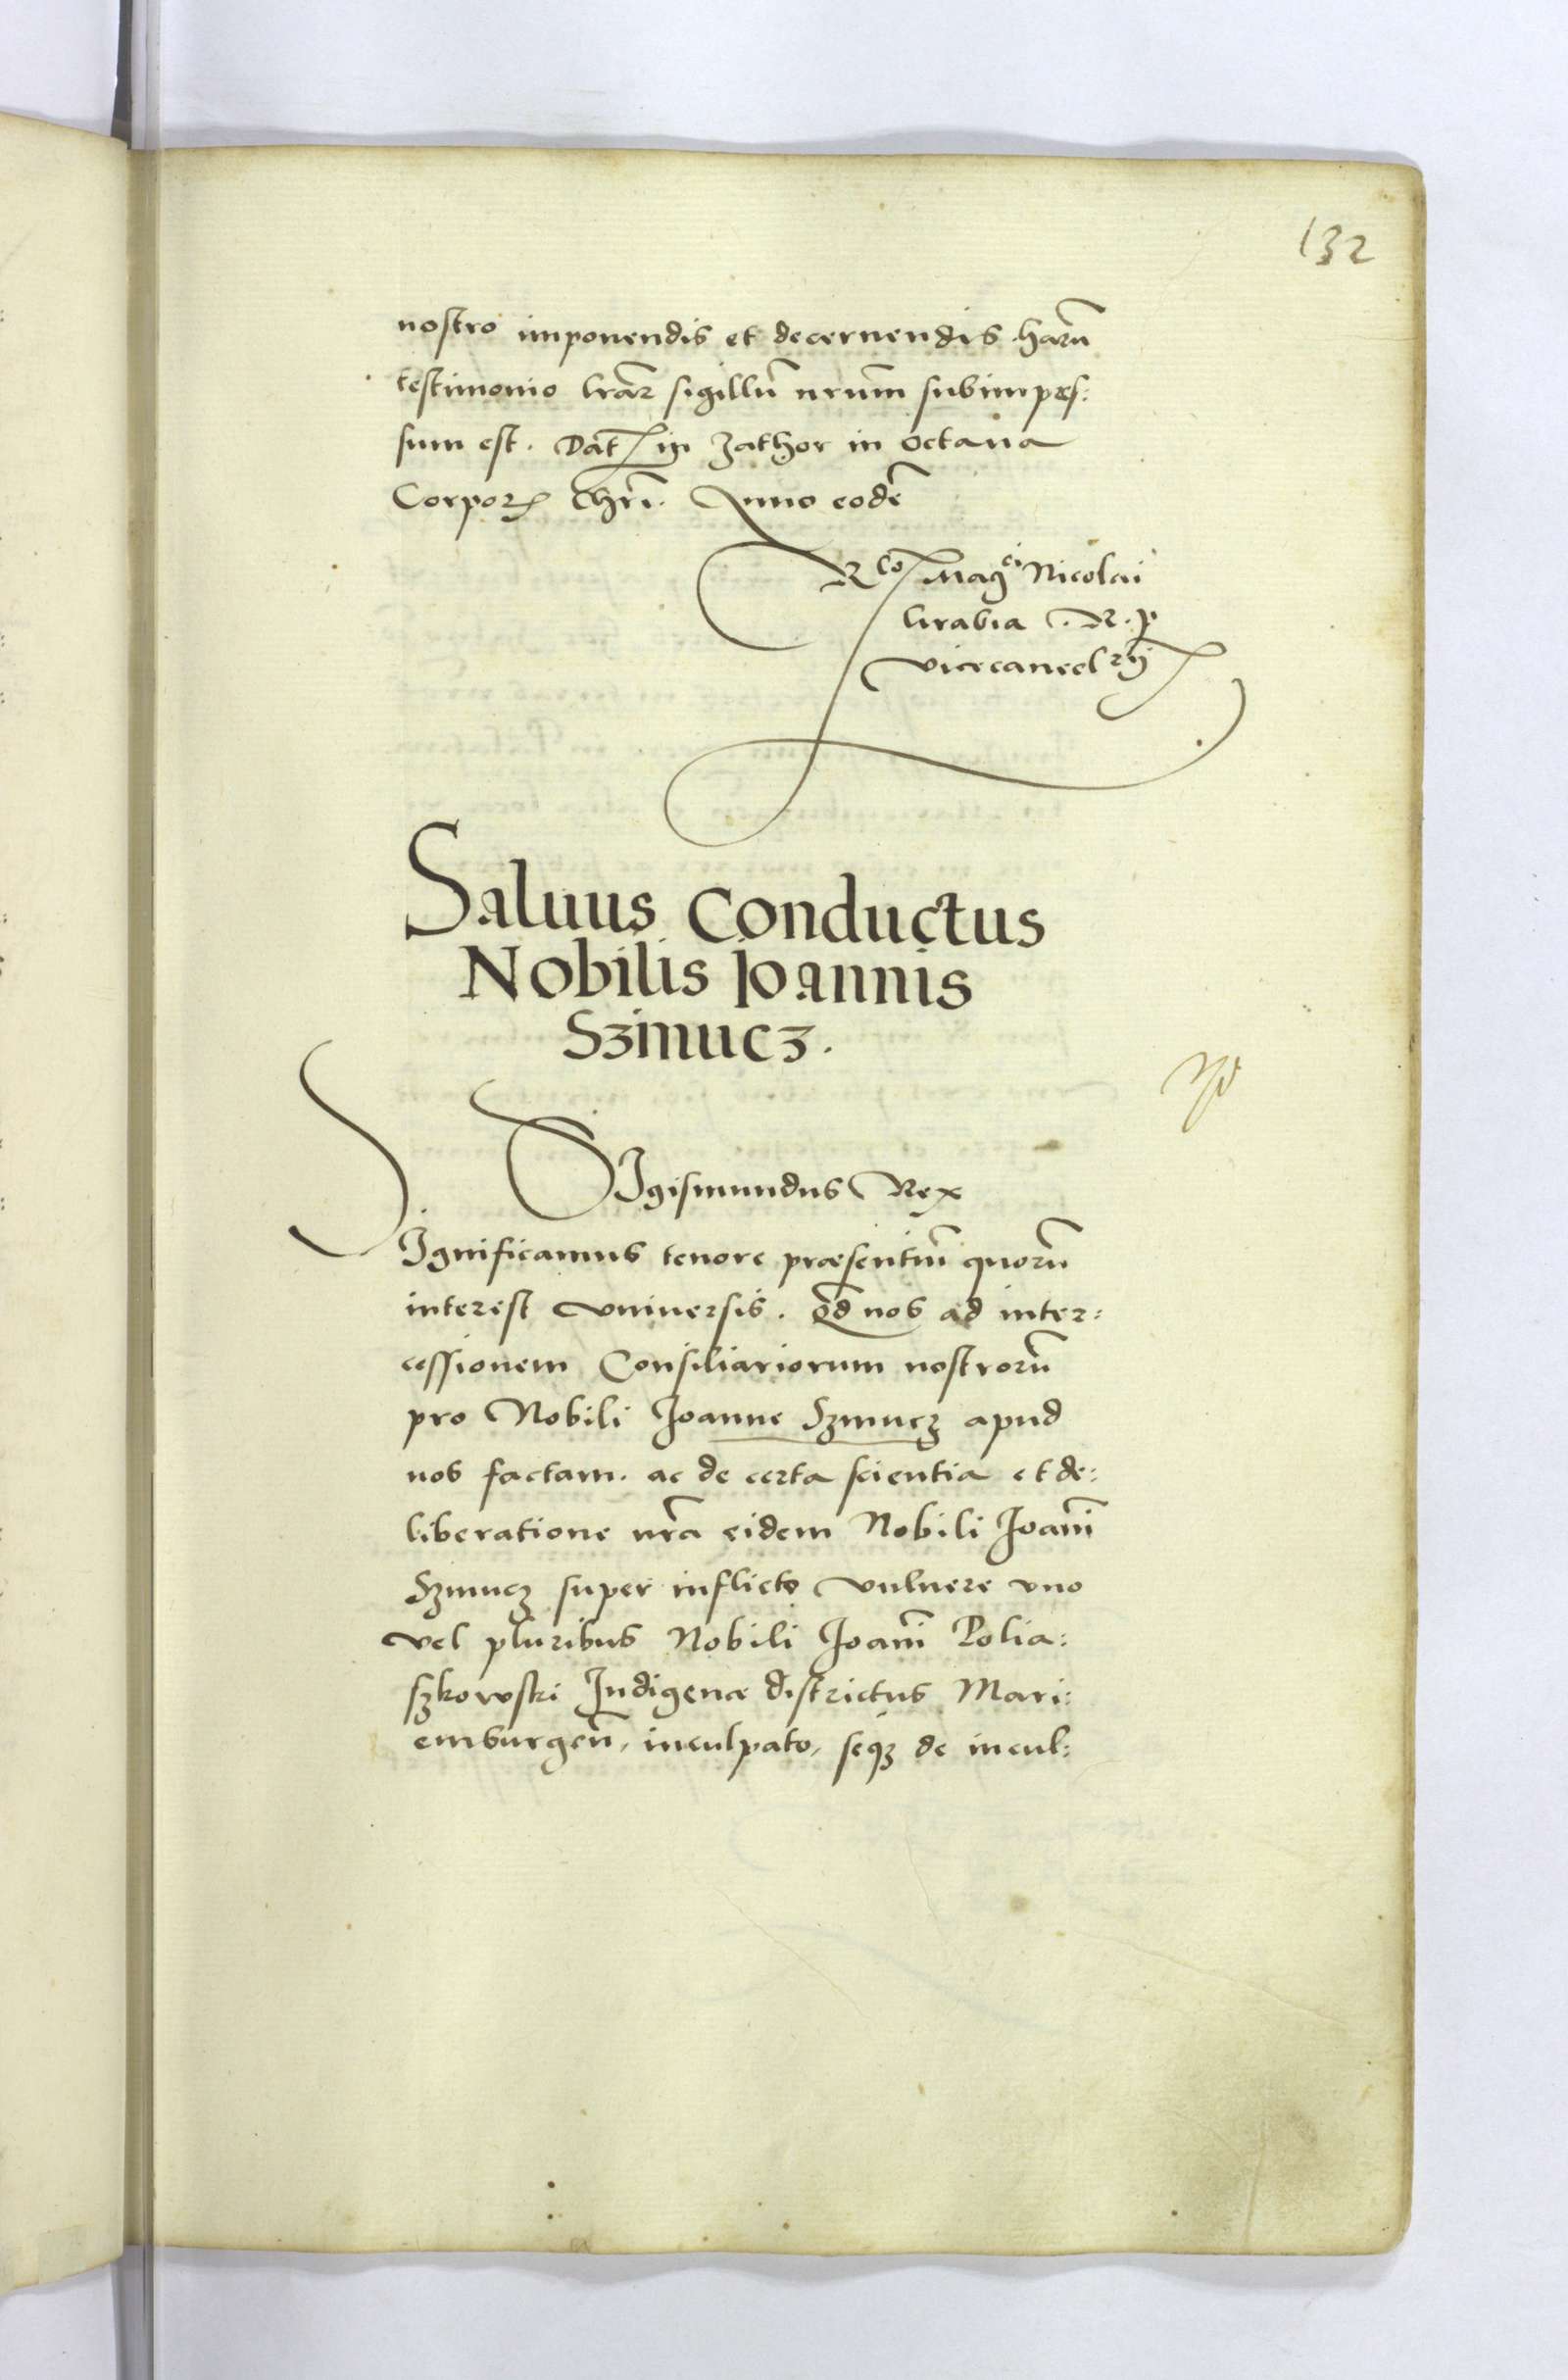 132
nostro imponendis et decernendis. harū
testimonio lrar̄ sigillū nrūm subimpres:
sum est. Dat in Zathor in octaua
Corporꝭ Chrī. Anno eodē
Rᶜᵒ Magᶜⁱ Nicolai
Grabia . R. P
vicecancelrij
Saluus Conductus
Nobilis Joannis
Szmucz.
SIgismundus Rex
SIgnificamus tenore præsentiū quorū
interest vniuersis. Qđ nos ad inter:
cessionem Consiliariorum nostrorū
pro Nobili Joanne Szmucz apud
nos factam. ac de certa scientia et de:
liberatione nrā eidem Nobili Joanī
Szmucz super inflicto vulnere vno
vel pluribus Nobili Joanī Polia:
szkowski Indigenæ districtus Mari:
emburgeñ, inculpato, seqꝫ de incul: